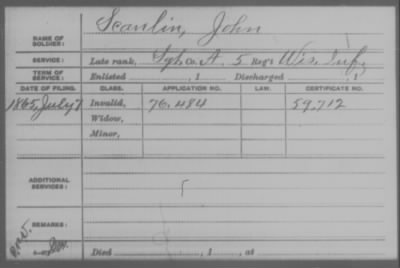 Scanlin, John
NAME OF SOLDIER:
SERVICE: Late rank, Sgt, Co. A, 5 Reg't Wis. Inf.
TERM OF SERVICE: Enlisted , 1 Discharged , 1
DATE OF FILING. CLASS. APPLICATION NO. LAW. CERTIFICATE NO.
1865, July 7 Invalid, 76,484 59,712
Widow,
Minor,
ADDITIONAL SERVICES:
REMARKS:
Died , 1 , at